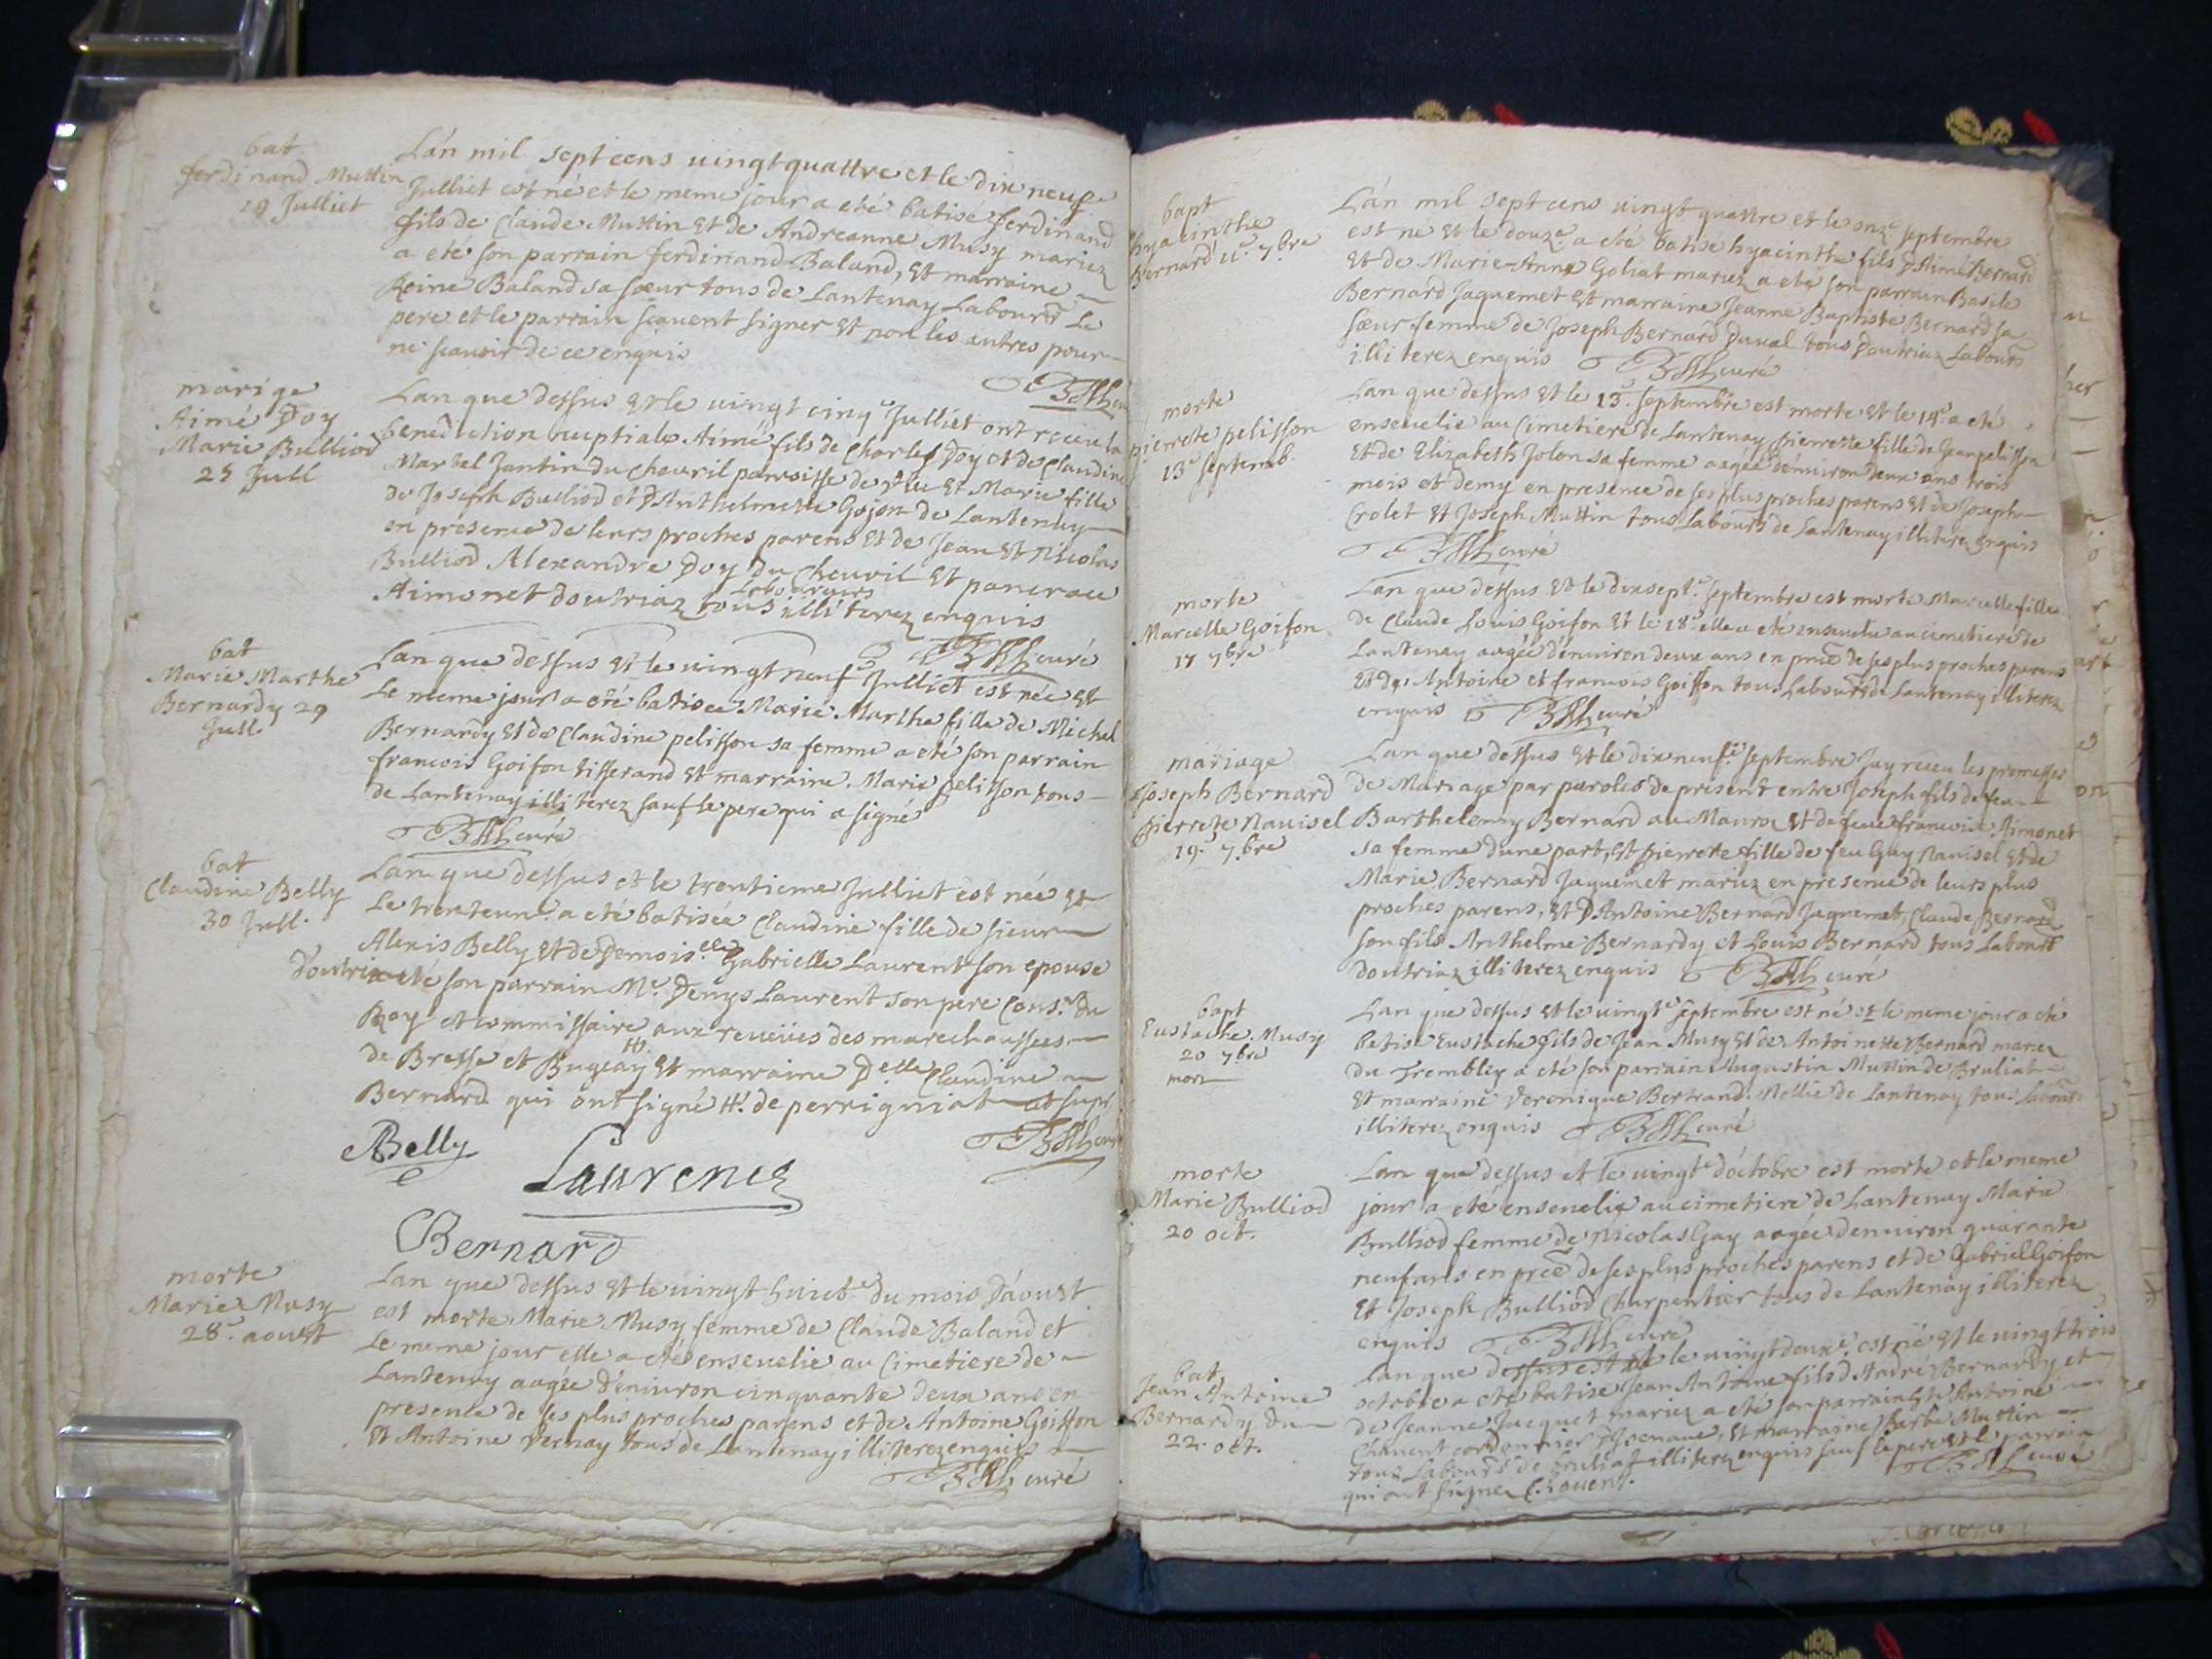 bat
ferdinand Muttin
19 Julliet
Lán mil sept cens uingt quattre et le dix neufe
Julliet est né et le meme jour a eté batisé ferdinand
fils de Claude Muttin et de Andreanne Musy mariez
a eté son parrain ferdinand Baland, et marraine
Reine Baland sa sœur tous de Lantenay Labourrs Le
pere et le parrain sçauent signer et non les autres pour
ne sçauoir de ce enquis
marige
Aimé Doy
Marie Bulliod
25 Jull
Lan que dessus et le uingt cinqe Julliet ont receu la
benediction nuptiale Aimé fils de Charles Doy et de Claudine
Martel Jantin du Cheuril parroisse de et Marie fille
de Joseph Bulliod et D'Anthelmette Gojon de Lantenay
en presence de leurs proches parens et de Jean et Nicolas
Bulliod Alexandre Doy du Cheuril et pancrace
Labourgurs
Aimonet doutriaz tous illiterez enquis
curé
bat
Marie Marthe
Bernardy 29
Jull.
Lan que dessus et le uingt neufe Julliet est née et
Le meme jour a eté batisée Marie Marthe fille de Michel
Bernardy et de Claudine pelisson sa femme a eté son parrain
francois Goifon tisserand et marraine Marie pelisson tous
de Lantenay illiterez sauf le pere qui a signé
curé
bat
Claudine Belly
30 Jull.
Lan que dessus et le trentieme Julliet est née et
Le trenteune a eté batisée Claudine fille de sieur
Alexis Belly et de Demoiselle Gabrielle Laurent son epouse
D'outriaz eté son parrain Me. Denys Laurent son pere Consr. du
Roy et commissaire aux reueües des marechaussees
de Bresse et Bugeay # et marraine Delle Claudine
Bernard qui ont signé #. de perrigniat et supr
Belly
curé
Laurencz
Bernard
morte
Marie Musy
28e aoust
Lan que dessus et le uingt huicte du mois D'áoust
est morte Marie Musy femme de Claude Baland et
Le meme jour elle a eté enseuelie au Cimetiere de
Lantenay aagée d'enuiron cinquante deux ans en
presence de ses plus proches parens et de Antoine Goiffon
et Antoine Vernay tous de Lantenay illiterez enquis
curé
bapt
hyacinthe
Bernard 11e 7bre
Lán mil sept cens uingt quattre et le onze septembre
est né et le douze a eté batise hyacinthe fils D'Aimé Bernard
et de Marie-Anne Goliat mariez a eté son parrain Basile
Bernard Jaquemet et marraine Jeanne Baptiste Bernard sa
sœur femme de Joseph Bernard Duual tous Doutriaz Labours
illiterez enquis curé
morte
pierrette pelisson
13e septemb.
Lan que dessus et le 13e. septembre est morte et le 14e a eté
enseuelie au Cimetiere de Lantenay pierrette fille de Jean pelisson
et de Elizabeth Jolon sa femme aagée d'enuiron deux ans trois
mois et demy en presence de ses plus proches parens et de Joseph
Crolet et Joseph Muttin tous Labours de Lantenay illiterez enquis
curé
morte
Marcelle Goifon
17 7bre
Lan que dessus et le dixsepte septembre est morte Marcelle fille
de Claude Louis Goifon et le 18e elle a eté enseuelie au cimetiere de
Lantenay aagée d'enuiron deux ans en prce de ses plus proches parens
et de Antoine et francois Goiffon tous Labours de Lantenay illiterez
enquis curé
mariage
Joseph Bernard
pierrete Nauisel
19e 7bre
Lan que dessus et le dix neufe septembre Jay receu les promesses
de Mariage par paroles de present entre Joseph fils de feu
Barthelemy Bernard au Mauroz et de feue francoise Aimonet
sa femme dune part, et pierrete fille de feu Guy Nauisel et de
Marie Bernard Jaquemet mariez en presence de leurs plus
proches parens, et D'Antoine Bernard Jaquemet, Claude Bernard
son fils Anthelme Bernardy et Louis Bernard tous Labours
doutriaz illiterez enquis curé
bapt
Eustache Musy
20 7bre
mort
Lan que dessus et le uingte septembre est né et le meme jour a eté
batisé Eustache fils de Jean Musy et de Antoinette Bernard mariez
du Trembley a eté son parrain Augustin Muttin de Bruliat
et marraine Veronique Bertrand Mellie de Lantenay tous Labours
illiterez enquis curé
morte
Marie Bulliod
20 oct.
Lan que dessus et le uingte d'octobre est morte et le meme
jour a eté enseuelie au cimetiere de Lantenay Marie
Bulliod femme de Nicolas Gay aagée denuiron quarante
neuf ans en prce de ses plus proches parens et de Gabriel Goifon
et Joseph Bulliod Charpentier tous de Lantenay illiterez
enquis curé
bat
Jean Antoine
Bernardy du
22. oct.
Lan que dessus est et le uingt deuxe est né et le uingt trois
octobre a eté batisé Jean Antoine fils d'André Bernardy et
de Jeanne Jacquet mariez a eté son parrain Antoine
Chauent cordonnier et marraine Barbe Muttin
tous Labours de Bruliat illiterez enquis sauf le pere et le parrain
qui ont signez C. curé